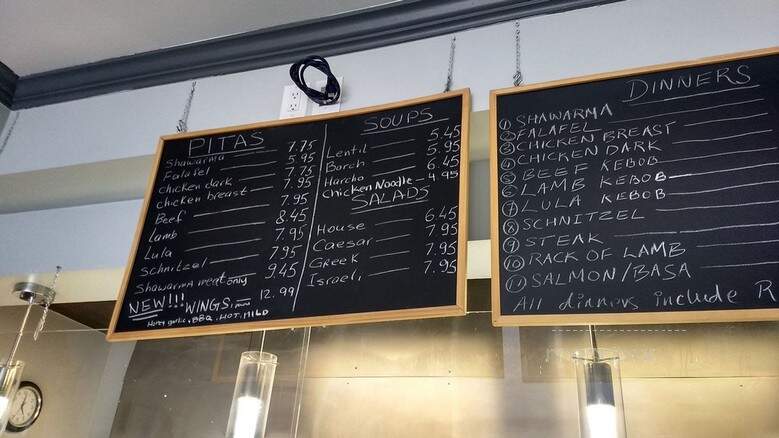 PITAS
Shawarma 7.75
Falafel 5.95
chicken dark 7.75
chicken breast 7.95
Beef 7.95
Lamb 8.45
Lula 7.95
Schnitzel 7.95
Shawarma meat only 9.45
NEW!!! WINGS: 12.99
Honey garlic, BBQ, HOT, MILD
SOUPS
Lentil 5.45
Borch 5.95
Harcho 6.45
Chicken Noodle 4.95
SALADS
House 6.45
Caesar 7.95
Greek 7.95
Israeli 7.95
DINNERS
1 SHAWARMA
2 FALAFEL
3 CHICKEN BREAST
4 CHICKEN DARK
5 BEEF KEBOB
6 LAMB KEBOB
7 LULA KEBOB
8 SCHNITZEL
9 STEAK
10 RACK OF LAMB
11 SALMON/BASA
All dinners include R